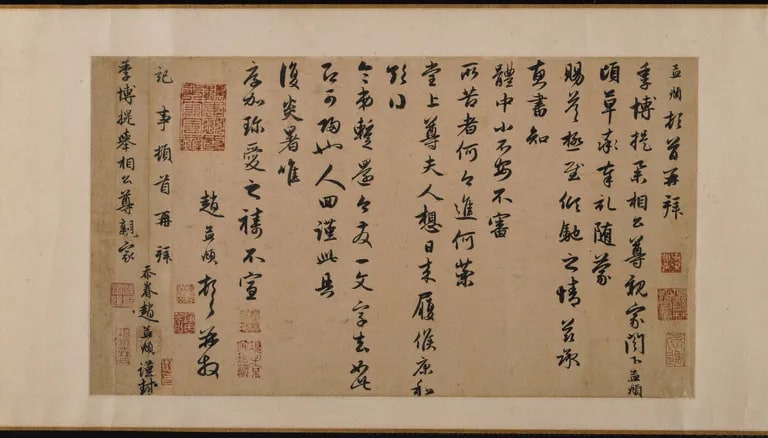 孟頫頓首再拜
季博提舉相公尊親家閣下孟頫
頃草率奉札隨蒙
賜答極慰傾馳之情茲承
惠書知
體中小不安不審
所苦者何今進何藥
堂上尊夫人想日來履候康和
暫還一文字去如此
人回謹此具
復炎暑唯
厚加珍愛之禱不宣
趙孟頫頓首再拜
記事頓首再拜
忝眷趙孟頫謹封
季博提舉相公尊親家